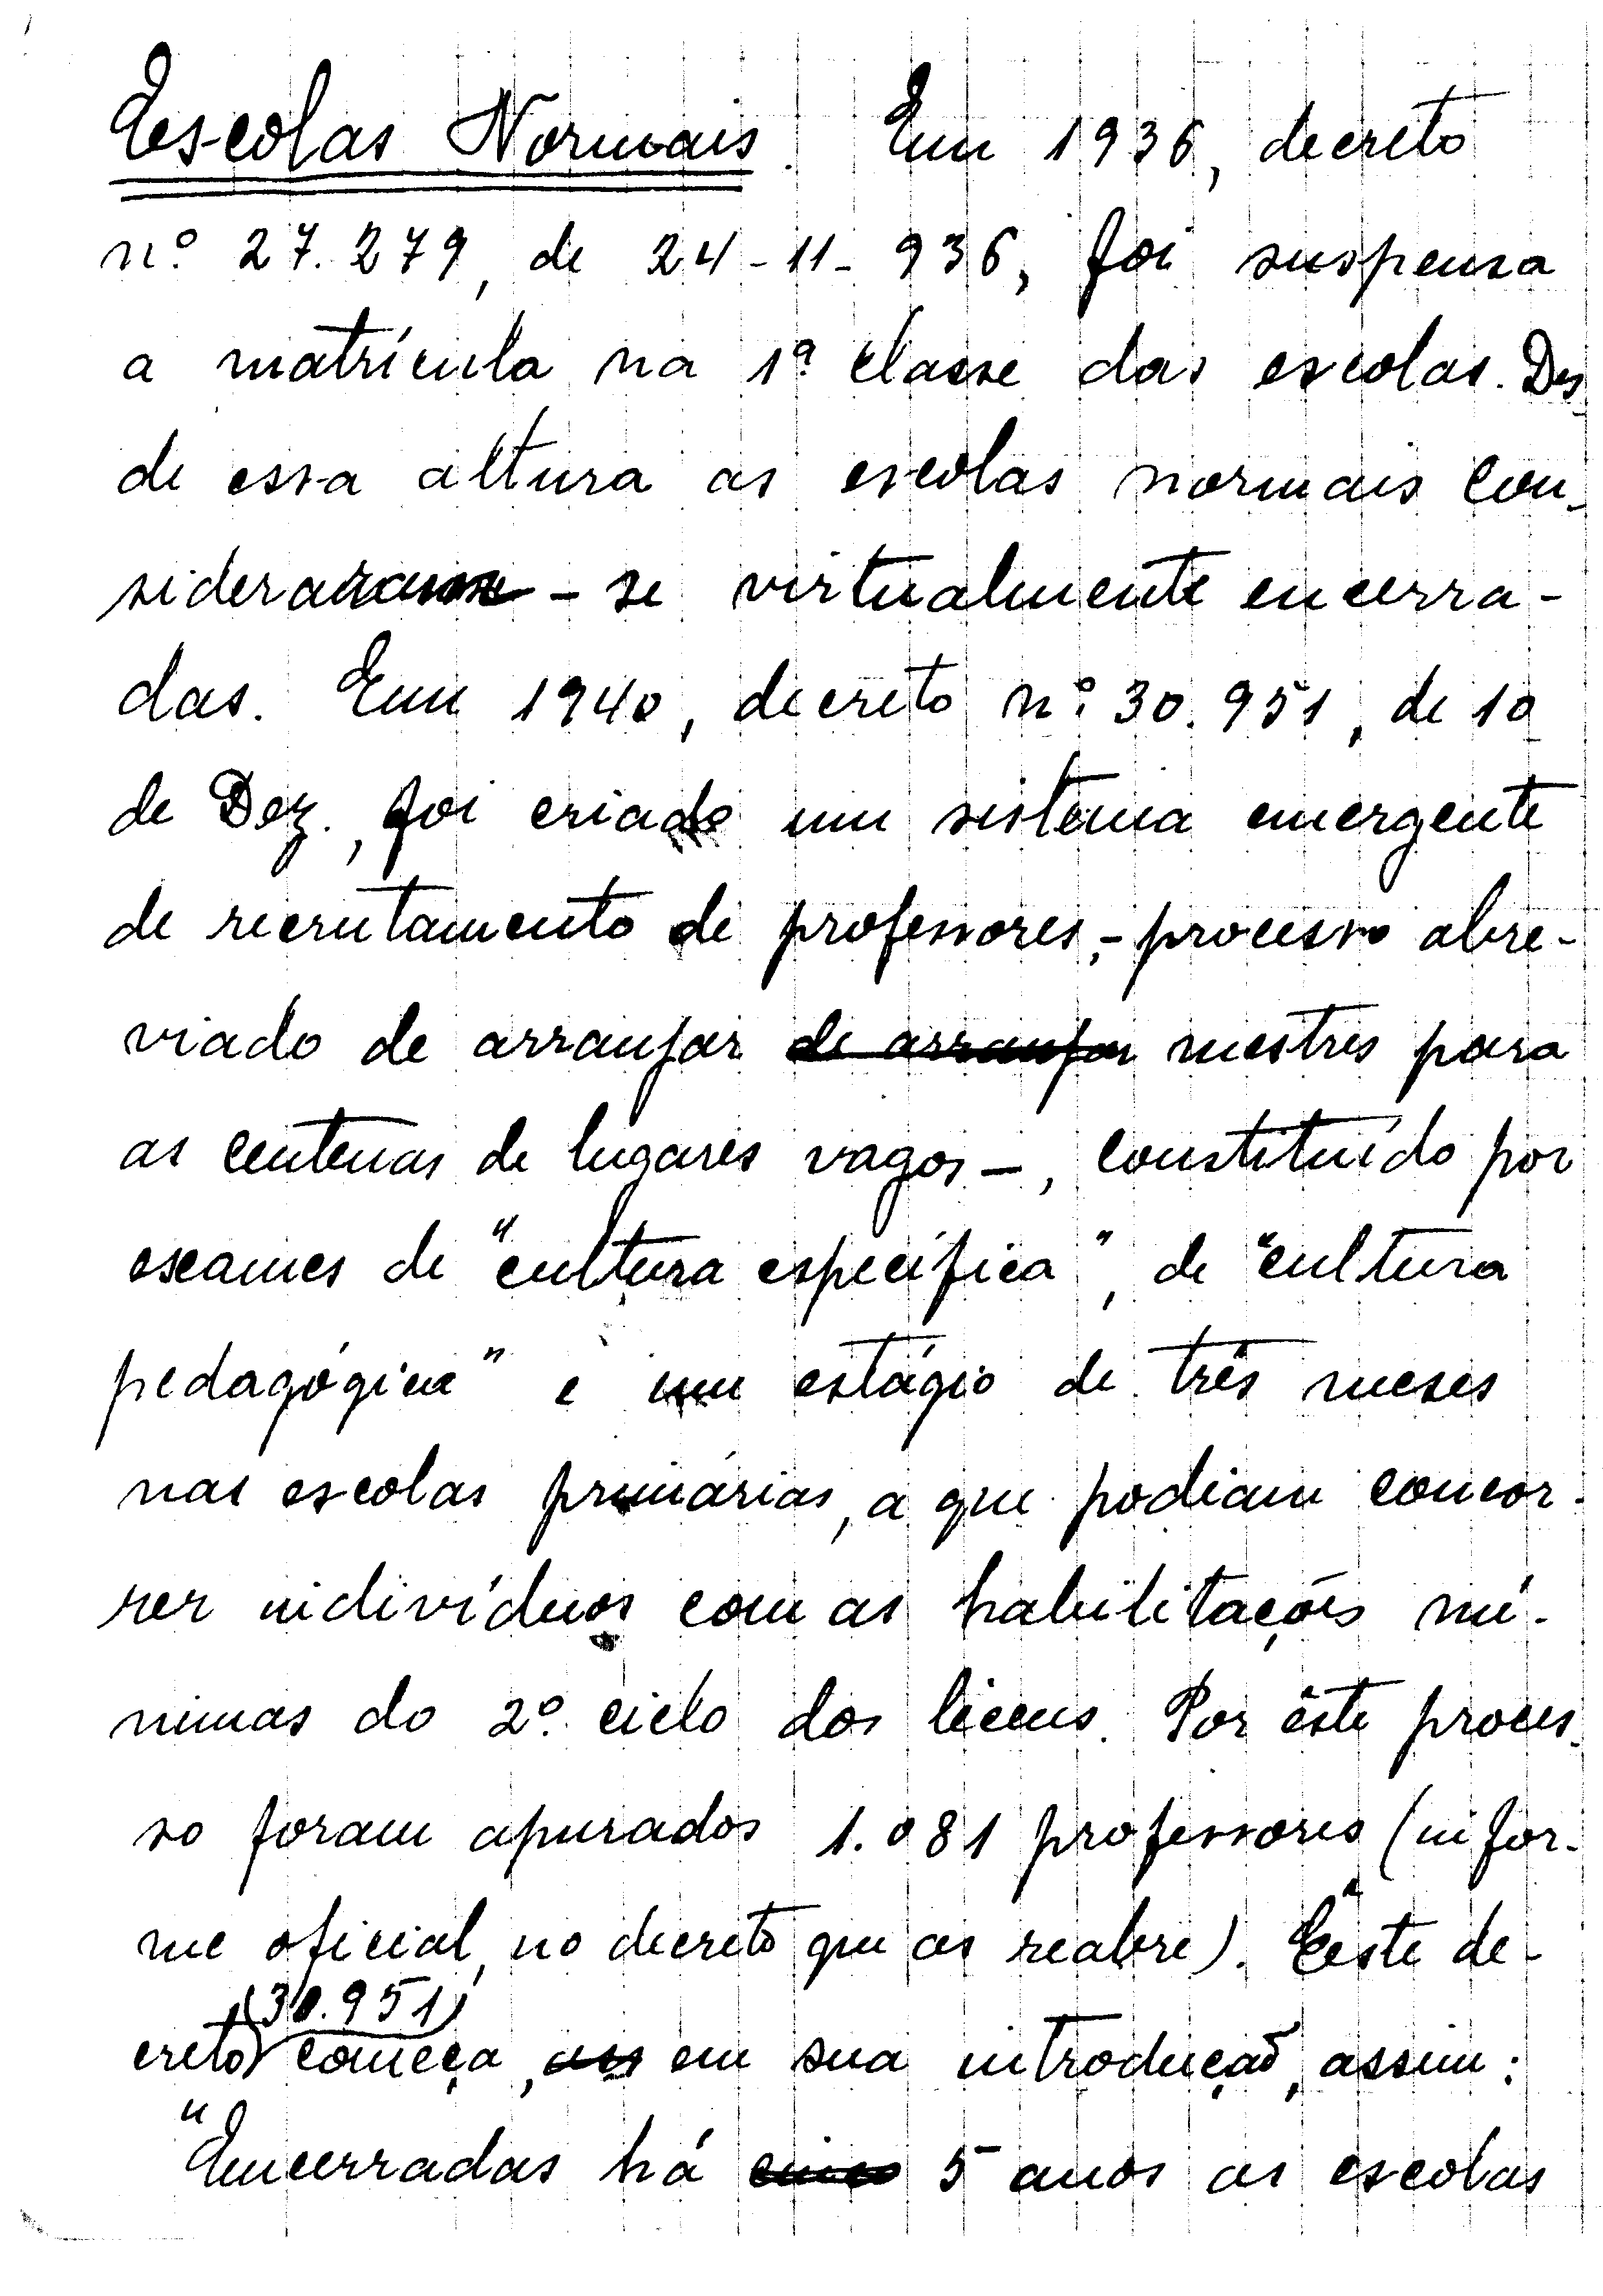 Escolas Normais. Em 1936, decreto
nº 27.279, de 24-11-936, foi suspensa
a matrícula na 1ª classe das escolas. Des
de essa altura as escolas normais con-
sideraram-se virtualmente encerra-
das. Em 1940, decreto nº 30.951, de 10
de Dez., foi criado um sistema emergente
de recrutamento de professores, - processo abre-
viado de arranjar de arranjar mestres para
as centenas de lugares vagos -, constituído por
exames de "cultura específica", de "cultura
pedagógica" e um estágio de três meses
nas escolas primárias, a que podiam concor-
rer indivíduos com as habilitações mí-
nimas do 2º ciclo dos liceus. Por êste proces-
so foram apurados 1.081 professores (infor-
me oficial, no decreto que as reabre). Êste de-
(30.951)
creto começa, em sua introdução, assim:
"Encerradas há cinco 5 anos as escolas